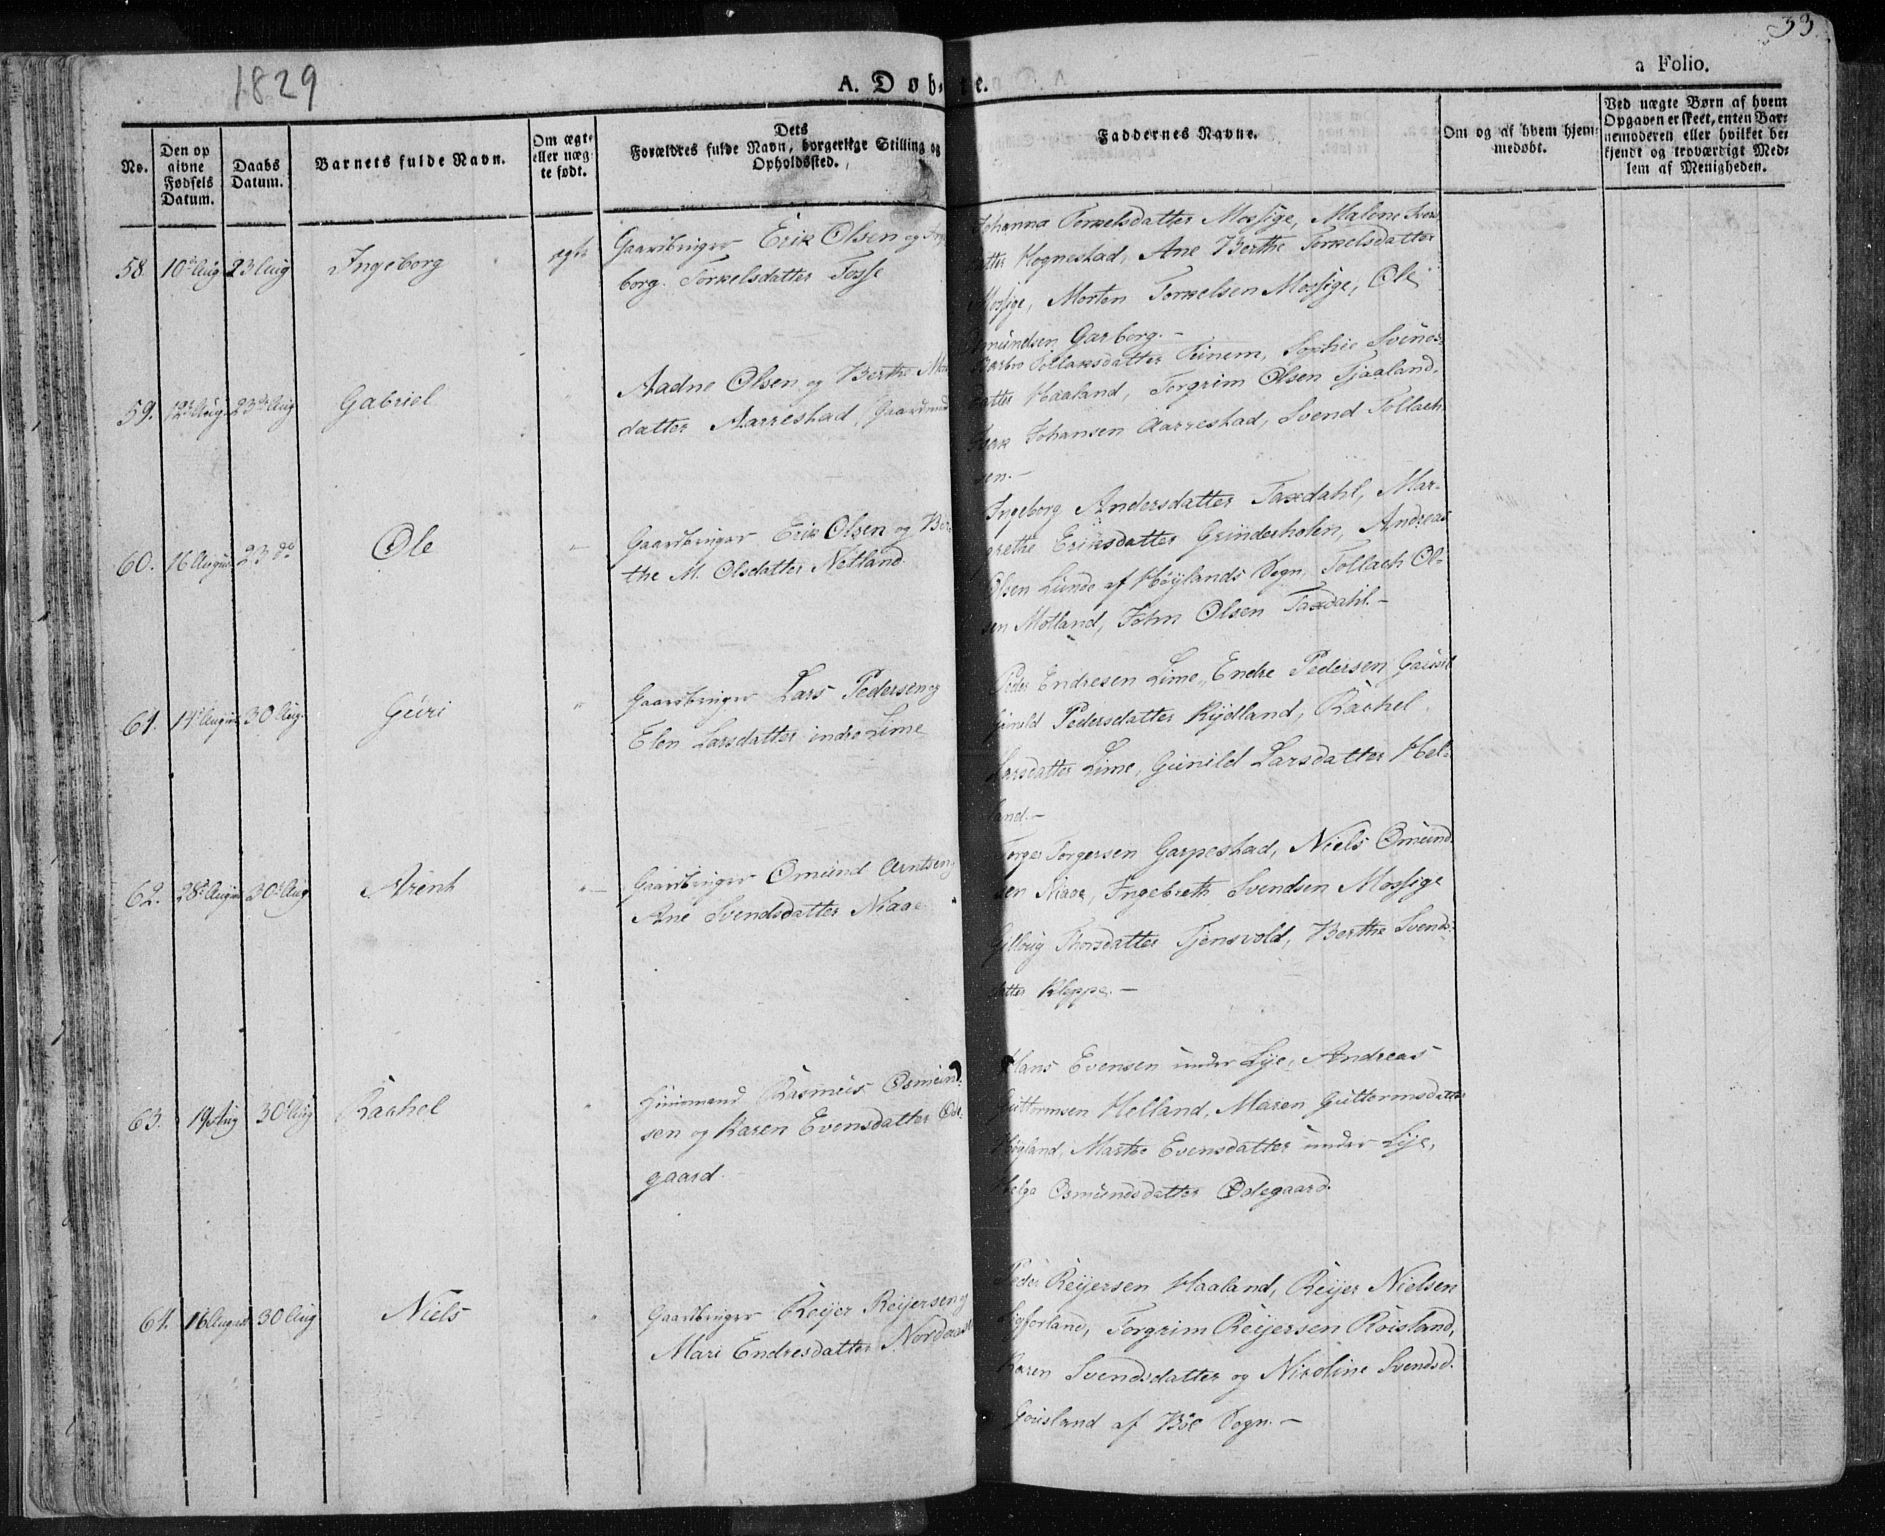 33
1829
A. Døb te.
a Folio.
No.
Den op
givne
Fødsels
Datum.
Daabs
Datum.
Barnets fulde Navn.
Om ægte
eller næg-
te født.
Dets
Forældres fulde Navn, borgerlige Stilling og
Opholdssted.
Faddernes Navne.
Om og af hvem hjem-
medøbt.
Ved uægte Børn af hvem
Opgaven er skeet, enten Bar-
nemoderen eller hvilket be-
kjendt og troværdigt Med-
lem af Menigheden.
58. 10de Aug 23 Aug Ingeborg ægte
Gaardbruger Erik Olsen og Inge
borg Torkelsdatter Tosse
Johanna Torkelsdatter Mossige, Malene Iver
datter Hognestad, Ane Berthe Torkelsdatter
Mossige, Morten Torkelsen Mossige, Ole
Omundsen Garborg.-
59. 12te Aug 23de Aug Gabriel
Aadne Olsen og Berthe
datter Aarrestad, Gaardmd
Tollaksdatter Tunem, Sophie Svends-
datter Haaland, Torgrim Olsen Tjaaland,
Johansen Aarrestad, Svend Tollach
sen.-
60. 16 August 23 do Ole "
Gaardbruger Erik Olsen og Ber
the M. Olsdatter Netland.
Ingeborg Andersdatter Taxdahl, Mar-
grethe Eriksdatter Grinderholen, Andreas
Olsen Lunde af Høylands Sogn, Tollach Ol-
sen Motland, John Olsen Taxdahl.-
61. 14de August 30 Aug. Guri "
Gaardbruger Lars Pedersen og
Elen Larsdatter indre Lime
Peder Endresen Lime, Endre Pedersen Gausel
Gunild Pedersdatter Rydland, Rachel
Larsdatter Lime, Gunild Larsdatter Hel-
land.-
62. 28de August 30de Aug Arent "
Gaardbruger Omund Arntsen og
Ane Svendsdatter Niaae
Torger Torgersen Garpestad, Niels Omund
sen Niaae, Ingebreth Svendsen Mossige
Thorsdatter Tjensvold, Berthe Svends-
datter Kleppe.-
63. 19 Aug 30 Aug Rachel "
Huusmand Rasmus Osmund
sen og Karen Evensdatter Øde-
gaard.
Hans Evensen under Lye, Andreas
Guttormsen Helland, Maren Guttormsdatter
Høyland, Marthe Evensdatter under Lye,
Helga Osmundsdatter Ødegaard.
64. 16 August 30 Aug Niels "
Gaardbruger Reijer Reijersen og
Mari Endresdatter Nordaas
Peder Reijersen Haaland, Reijer Nielsen
Lyforland, Torgrim Reijersen Roisland,
Karen Svendsdatter og Nicoline Svendsd.
Goiisland af Bøe Sogn.-